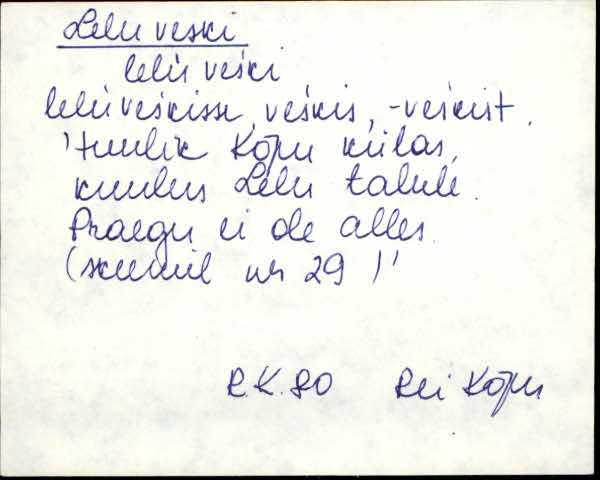 Lelu veski
lelù veśki
lelùveśkisse, veśkis, -veśkist.
'tuulik Kõpu külas,
kuulus Lelu talule.
Praegu ei ole alles.
(skeemil nr 29)'
R.K. 80 Rei Kõpu